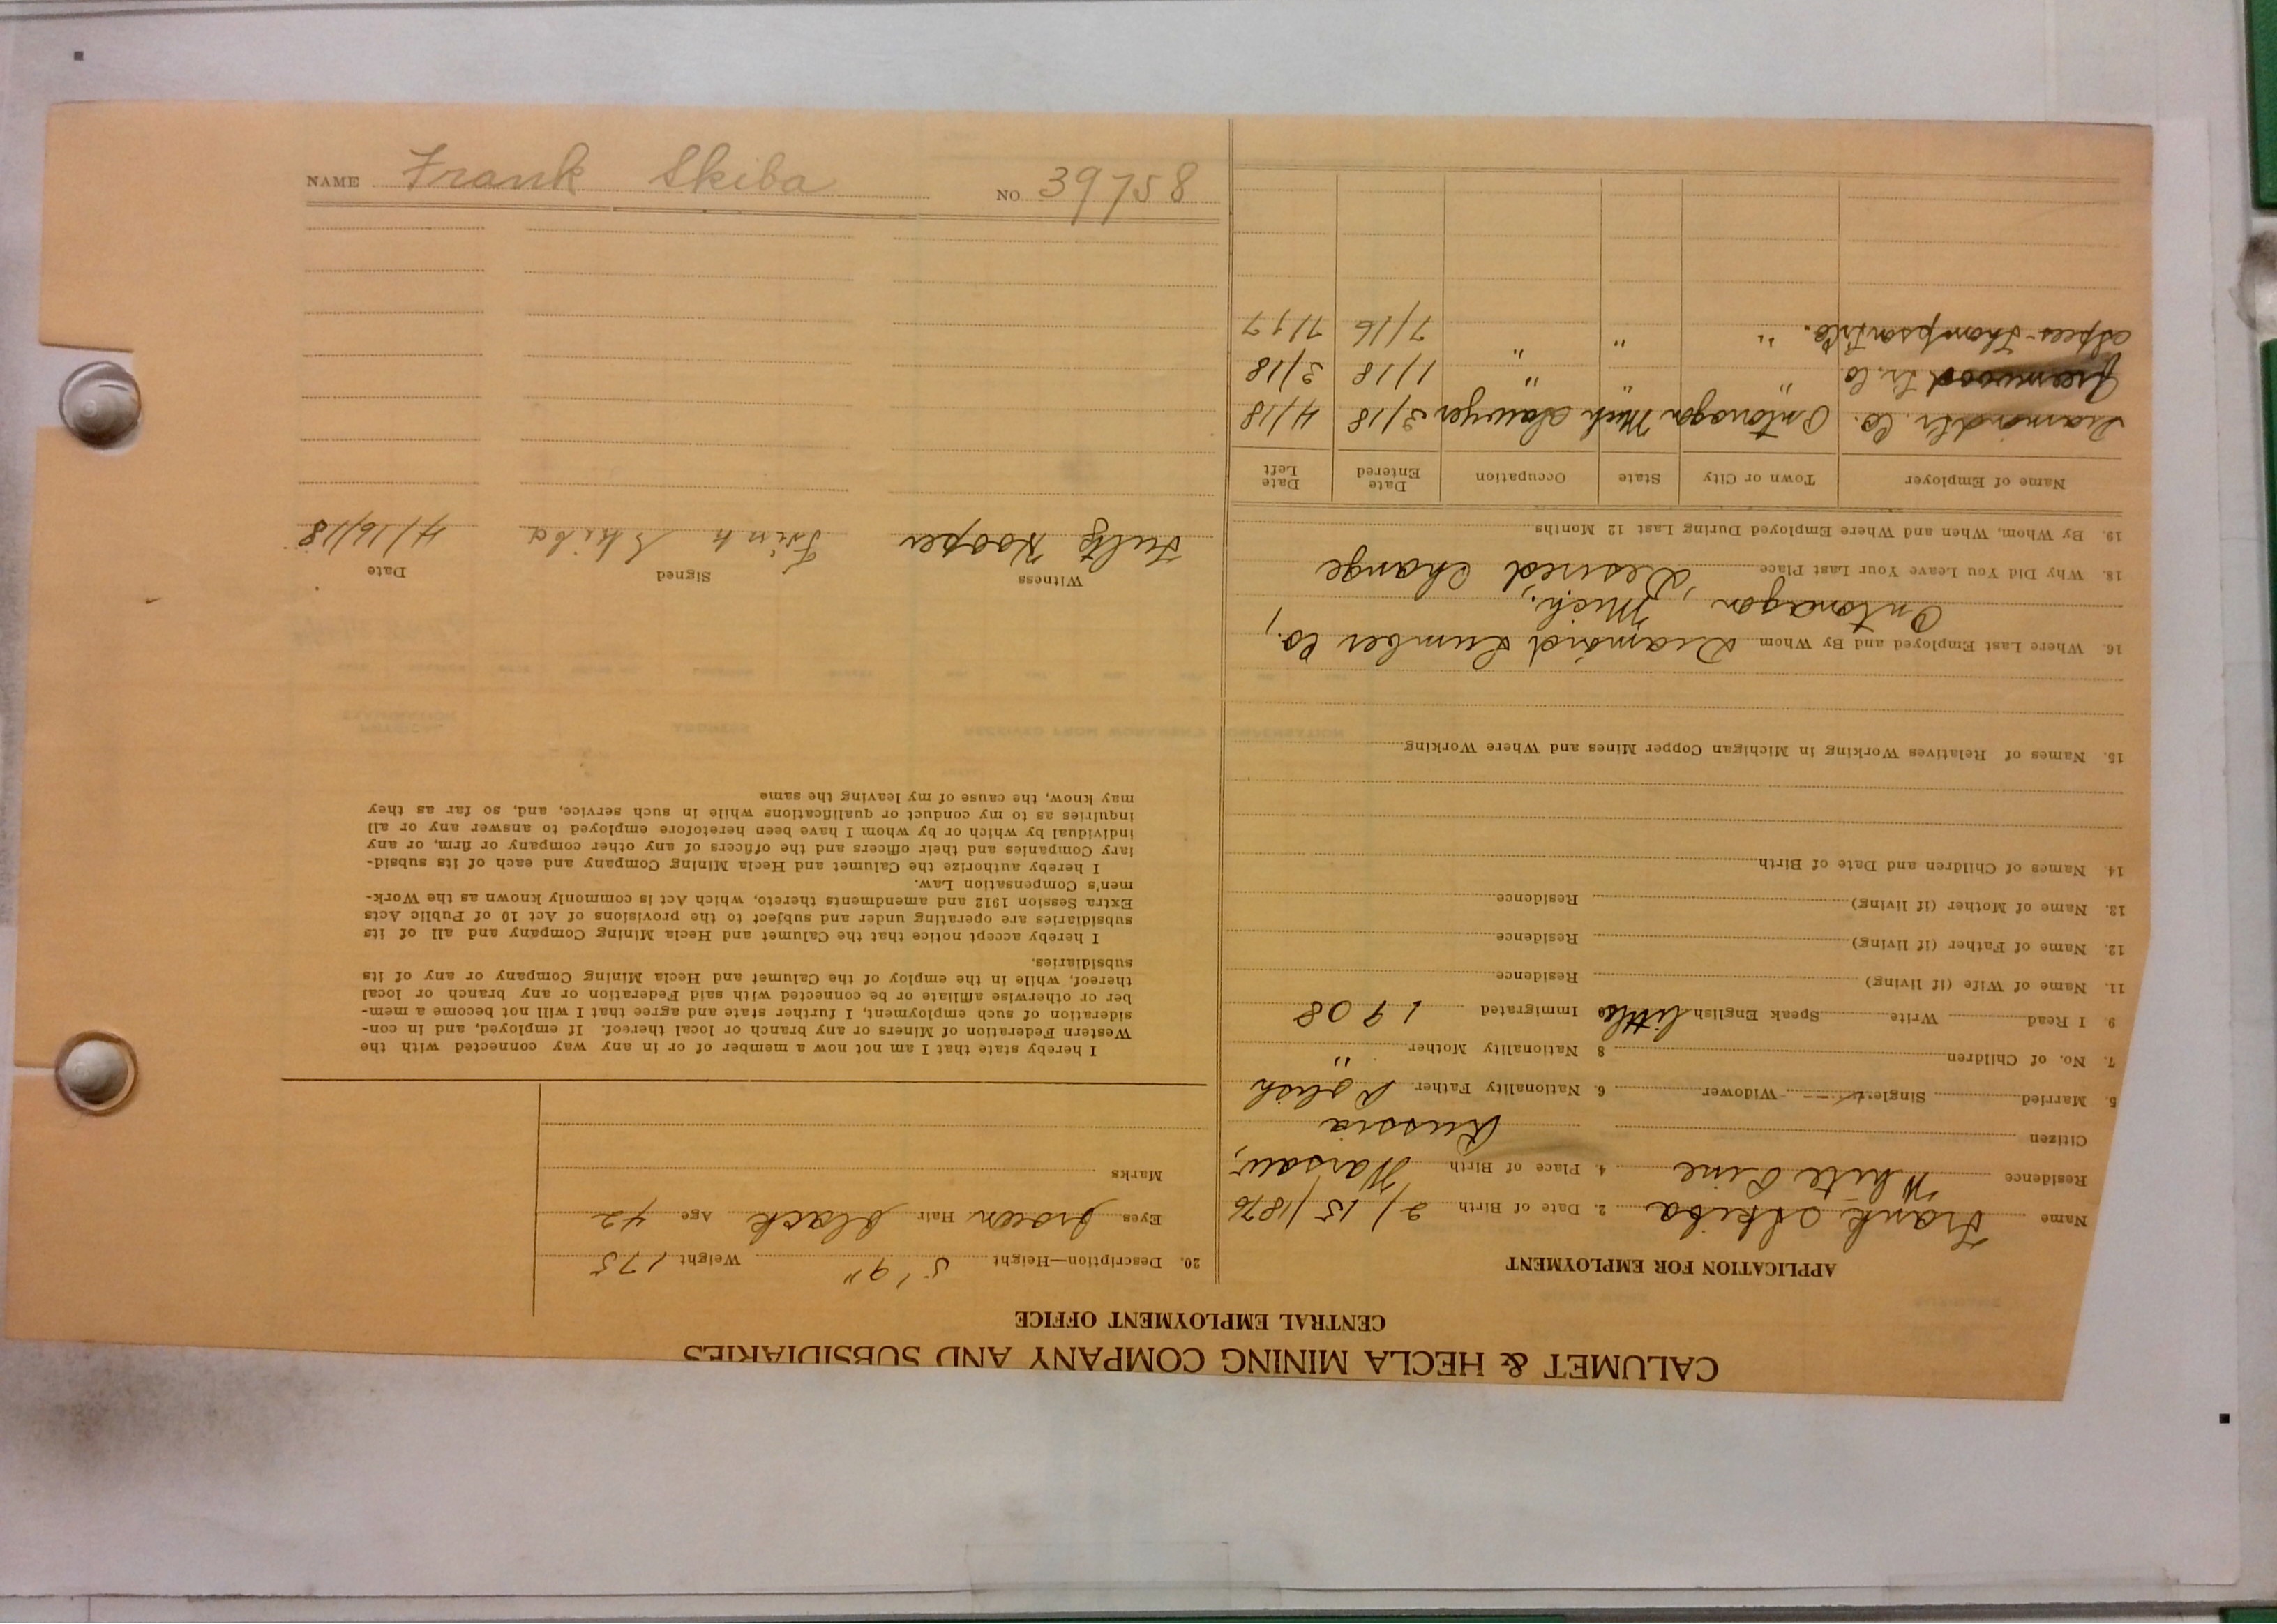 CALUMET & HECLA MINING COMPANY AND SUBSIDIARIES
CENTRAL EMPLOYMENT OFFICE
APPLICATION FOR EMPLOYMENT
Name Frank Skiba 2. Date of Birth 2/15/1876
Residence White Pine 4. Place of Birth Warsaw,
Citizen Russia
5. Married Single Widower 6. Nationality Father Polish
7. No. of Children 8 Nationality Mother "
9 I Read Write Speak English little Immigrated 1908
11. Name of Wife (if living) Residence
12. Name of Father (if living) Residence
13. Name of Mother (if living) Residence
14. Names of Children and Date of Birth
15. Names of Relatives Working in Michigan Copper Mines and Where Working
16. Where Last Employed and By Whom Diamond Lumber Co.,
Ontonagon, Mich.
18. Why Did You Leave Your Last Place Desired change
19. By Whom, When and Where Employed During Last 12 Months
Name of Employer Town or City State Occupation Date Entered Date Left
Diamond Lr. Co. Ontonagon Mich Sawyer 3/18 4/18
Greenwood Lr. Co. " " " 1/18 3/18
Thompson " " " 7/16 7/17
20. Description—Height 5' 9" Weight 175
Eyes brown Hair black Age 42
Marks
I hereby state that I am not now a member of or in any way connected with the
Western Federation of Miners or any branch or local thereof. If employed, and in con-
sideration of such employment, I further state and agree that I will not become a mem-
ber or otherwise affiliate or be connected with said Federation or any branch or local
thereof, while in the employ of the Calumet and Hecla Mining Company or any of its
subsidiaries.
I hereby accept notice that the Calumet and Hecla Mining Company and all of its
subsidiaries are operating under and subject to the provisions of Act 10 of Public Acts
Extra Session 1912 and amendments thereto, which Act is commonly known as the Work-
men's Compensation Law.
I hereby authorize the Calumet and Hecla Mining Company and each of its subsid-
iary Companies and their officers and the officers of any other company or firm, or any
individual by which or by whom I have been heretofore employed to answer any or all
inquiries as to my conduct or qualifications while in such service, and, so far as they
may know, the cause of my leaving the same
Witness Signed Date
Hooper Frink Skiba 4/16/18
NAME Frank Skiba NO. 39758